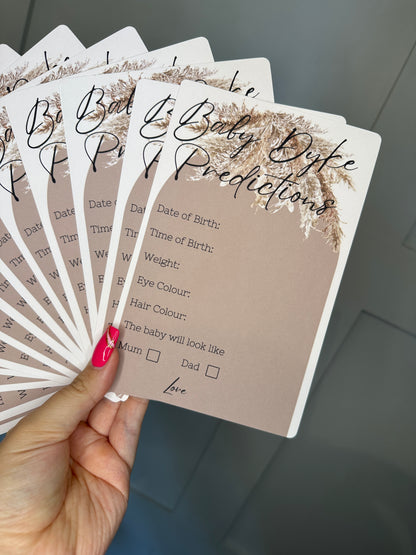 Baby Dyke
Predictions
Date of Birth:
Time of Birth:
Weight:
Eye Colour:
Hair Colour:
The baby will look like
Mum
Dad
Love